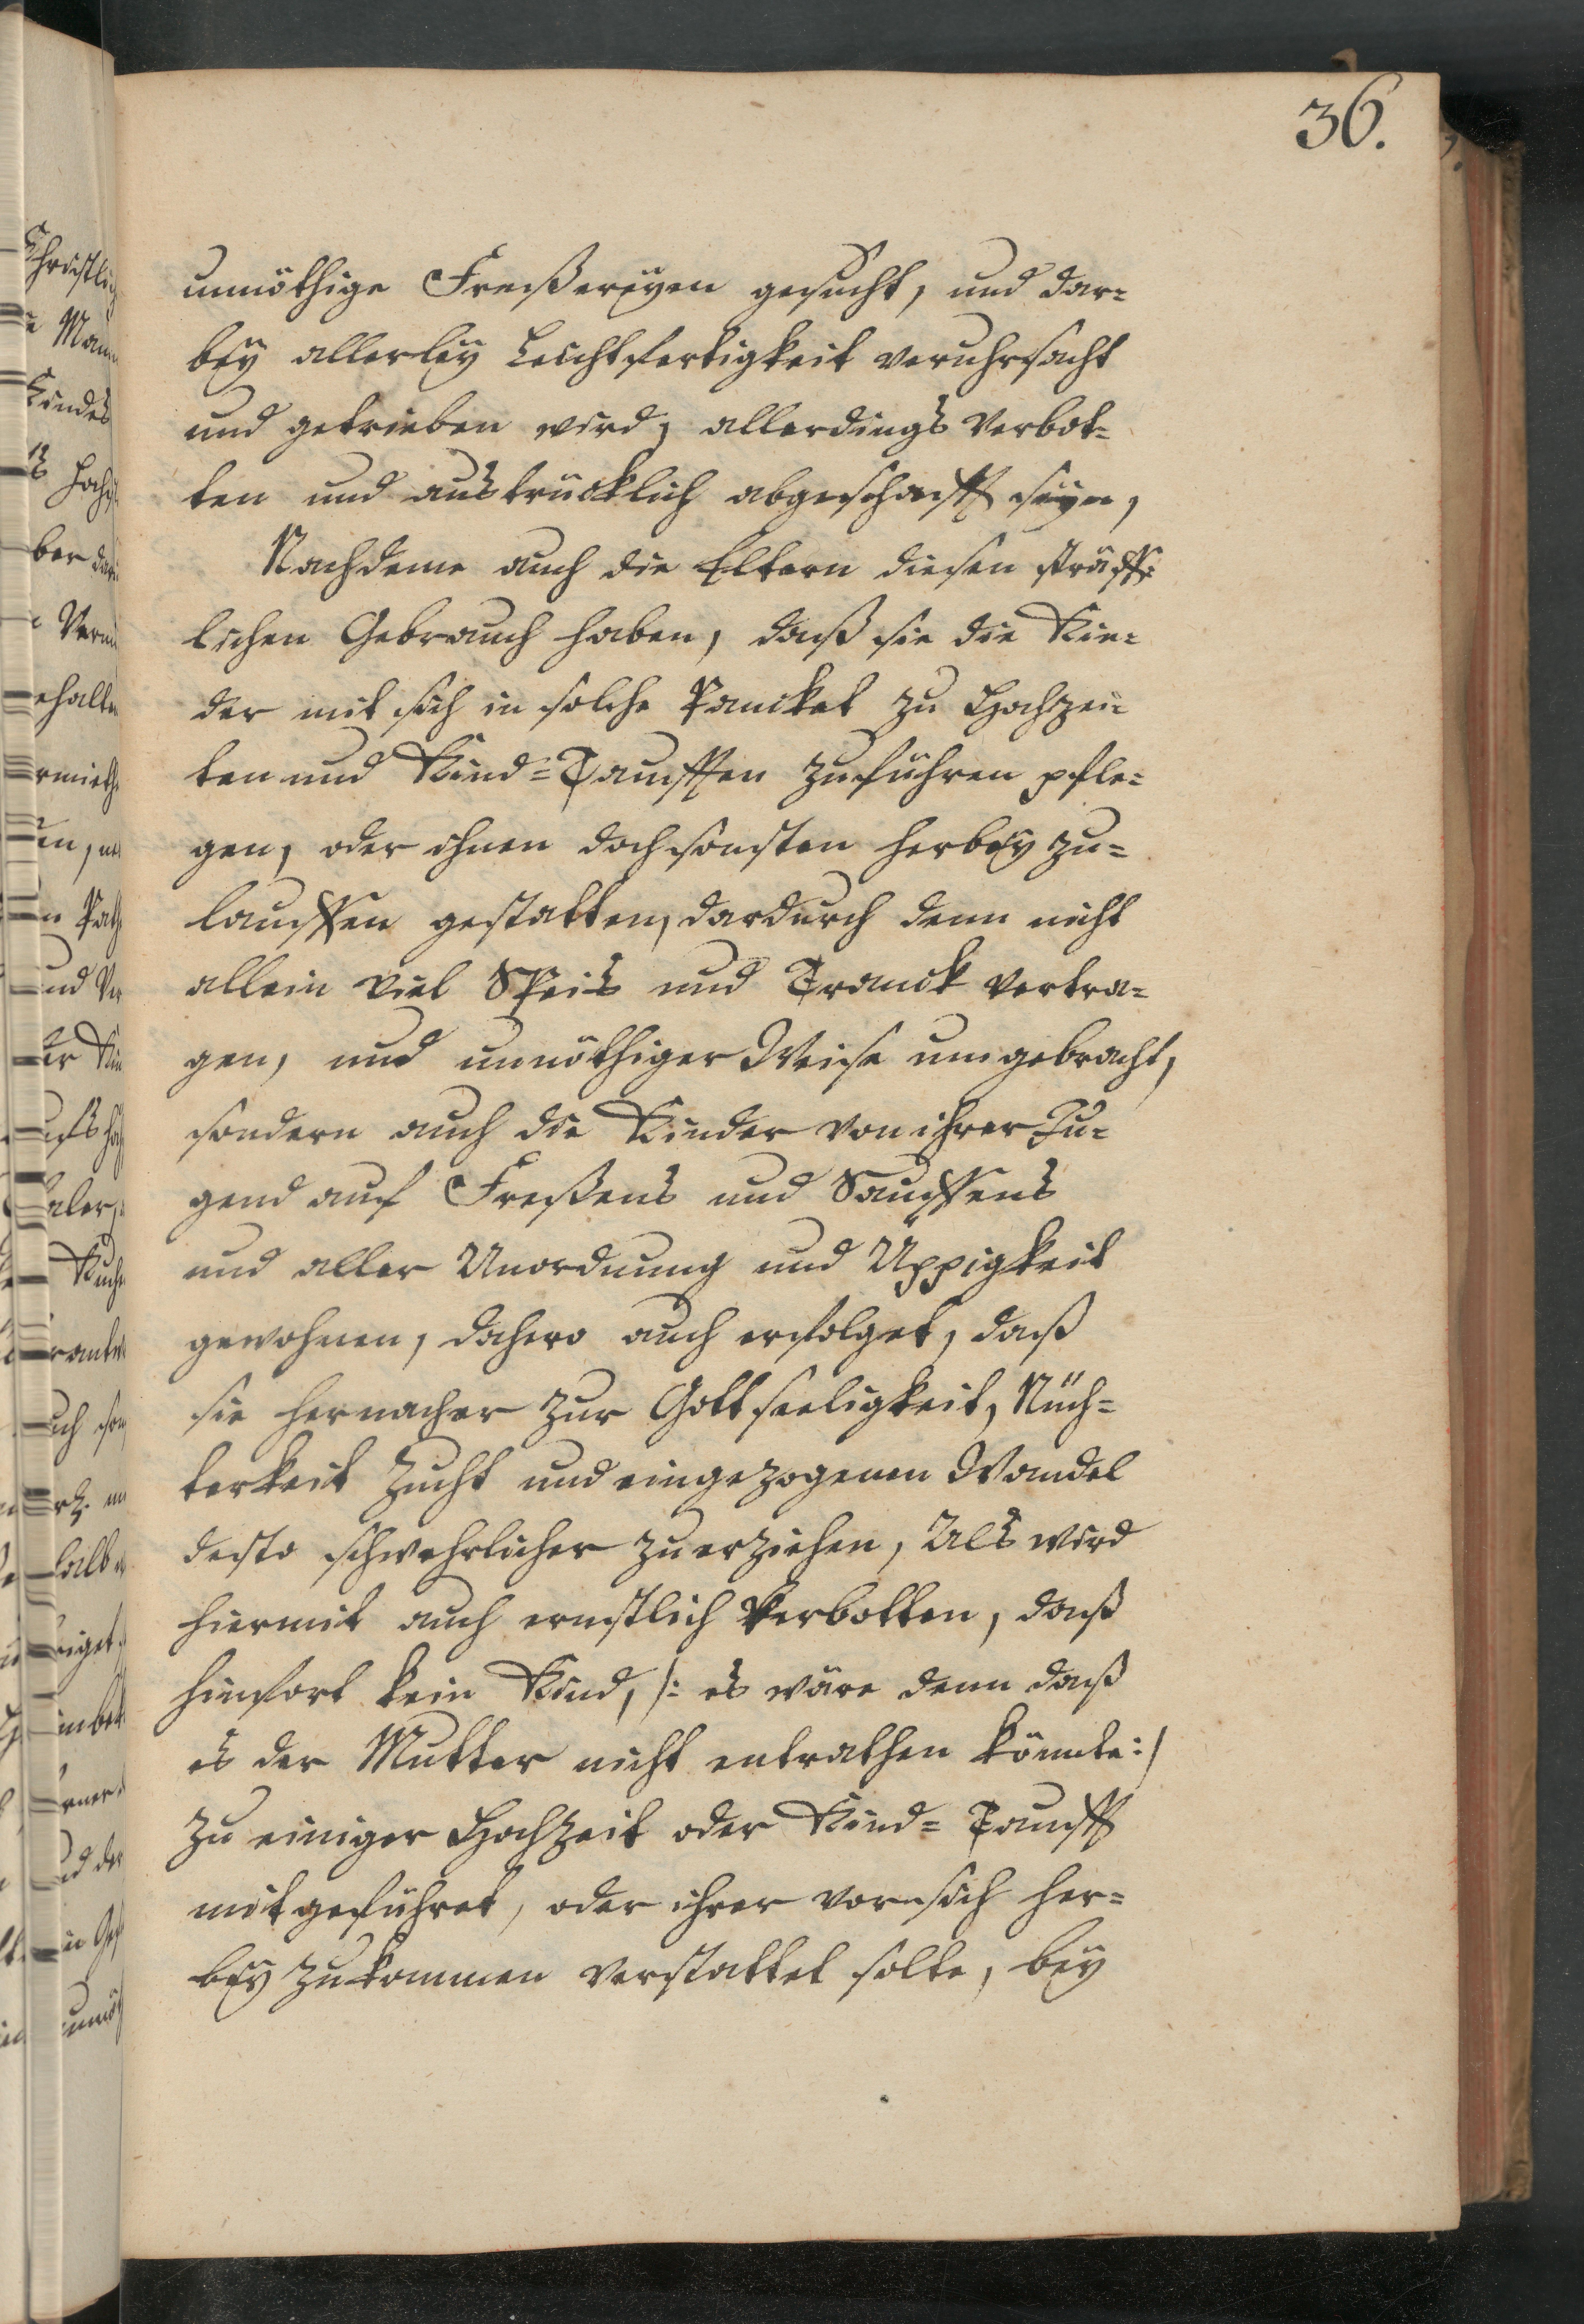 36.
unnöthige Freßereyen gesucht, und dar=
bey allerley Leichtfertigkeit veruhrsacht
und getrieben wird, allerdings verbot=
ten und austrücklich abgeschafft seyn,
Nachdeme auch die Eltern diesen sträff=
lichen Gebrauch haben, daß sie die Kin=
der mit sich in solche Pancket zu Hochzei=
ten und Kind=Taufften zuführen pfle=
gen, oder ihnen doch sonsten herbey zu=
lauffen gestatten, dardurch denn nicht
allein viel Speis und Tranck vertra=
gen, und unnöthiger Weise umgebracht,
sondern auch die Kinder von ihrer Ju=
gend auf Freßens und Sauffens
und aller Unordnung und Üppigkeit
gewohnen, dahero auch erfolget, daß
sie hernacher zur Gottseeligkeit, Nüch=
terkeit Zucht und eingezogenen Wandel
desto schwehrlicher zuerziehen, Als wird
hiermit auch ernstlich verbotten, daß
hinfort kein Kind, /: es wäre denn daß
es der Mutter nicht entrathen könnte:/
zu einiger Hochzeit oder Kind=Tauff
mitgeführet, oder ihrer vor sich her=
bey zukommen verstattet solte, bey